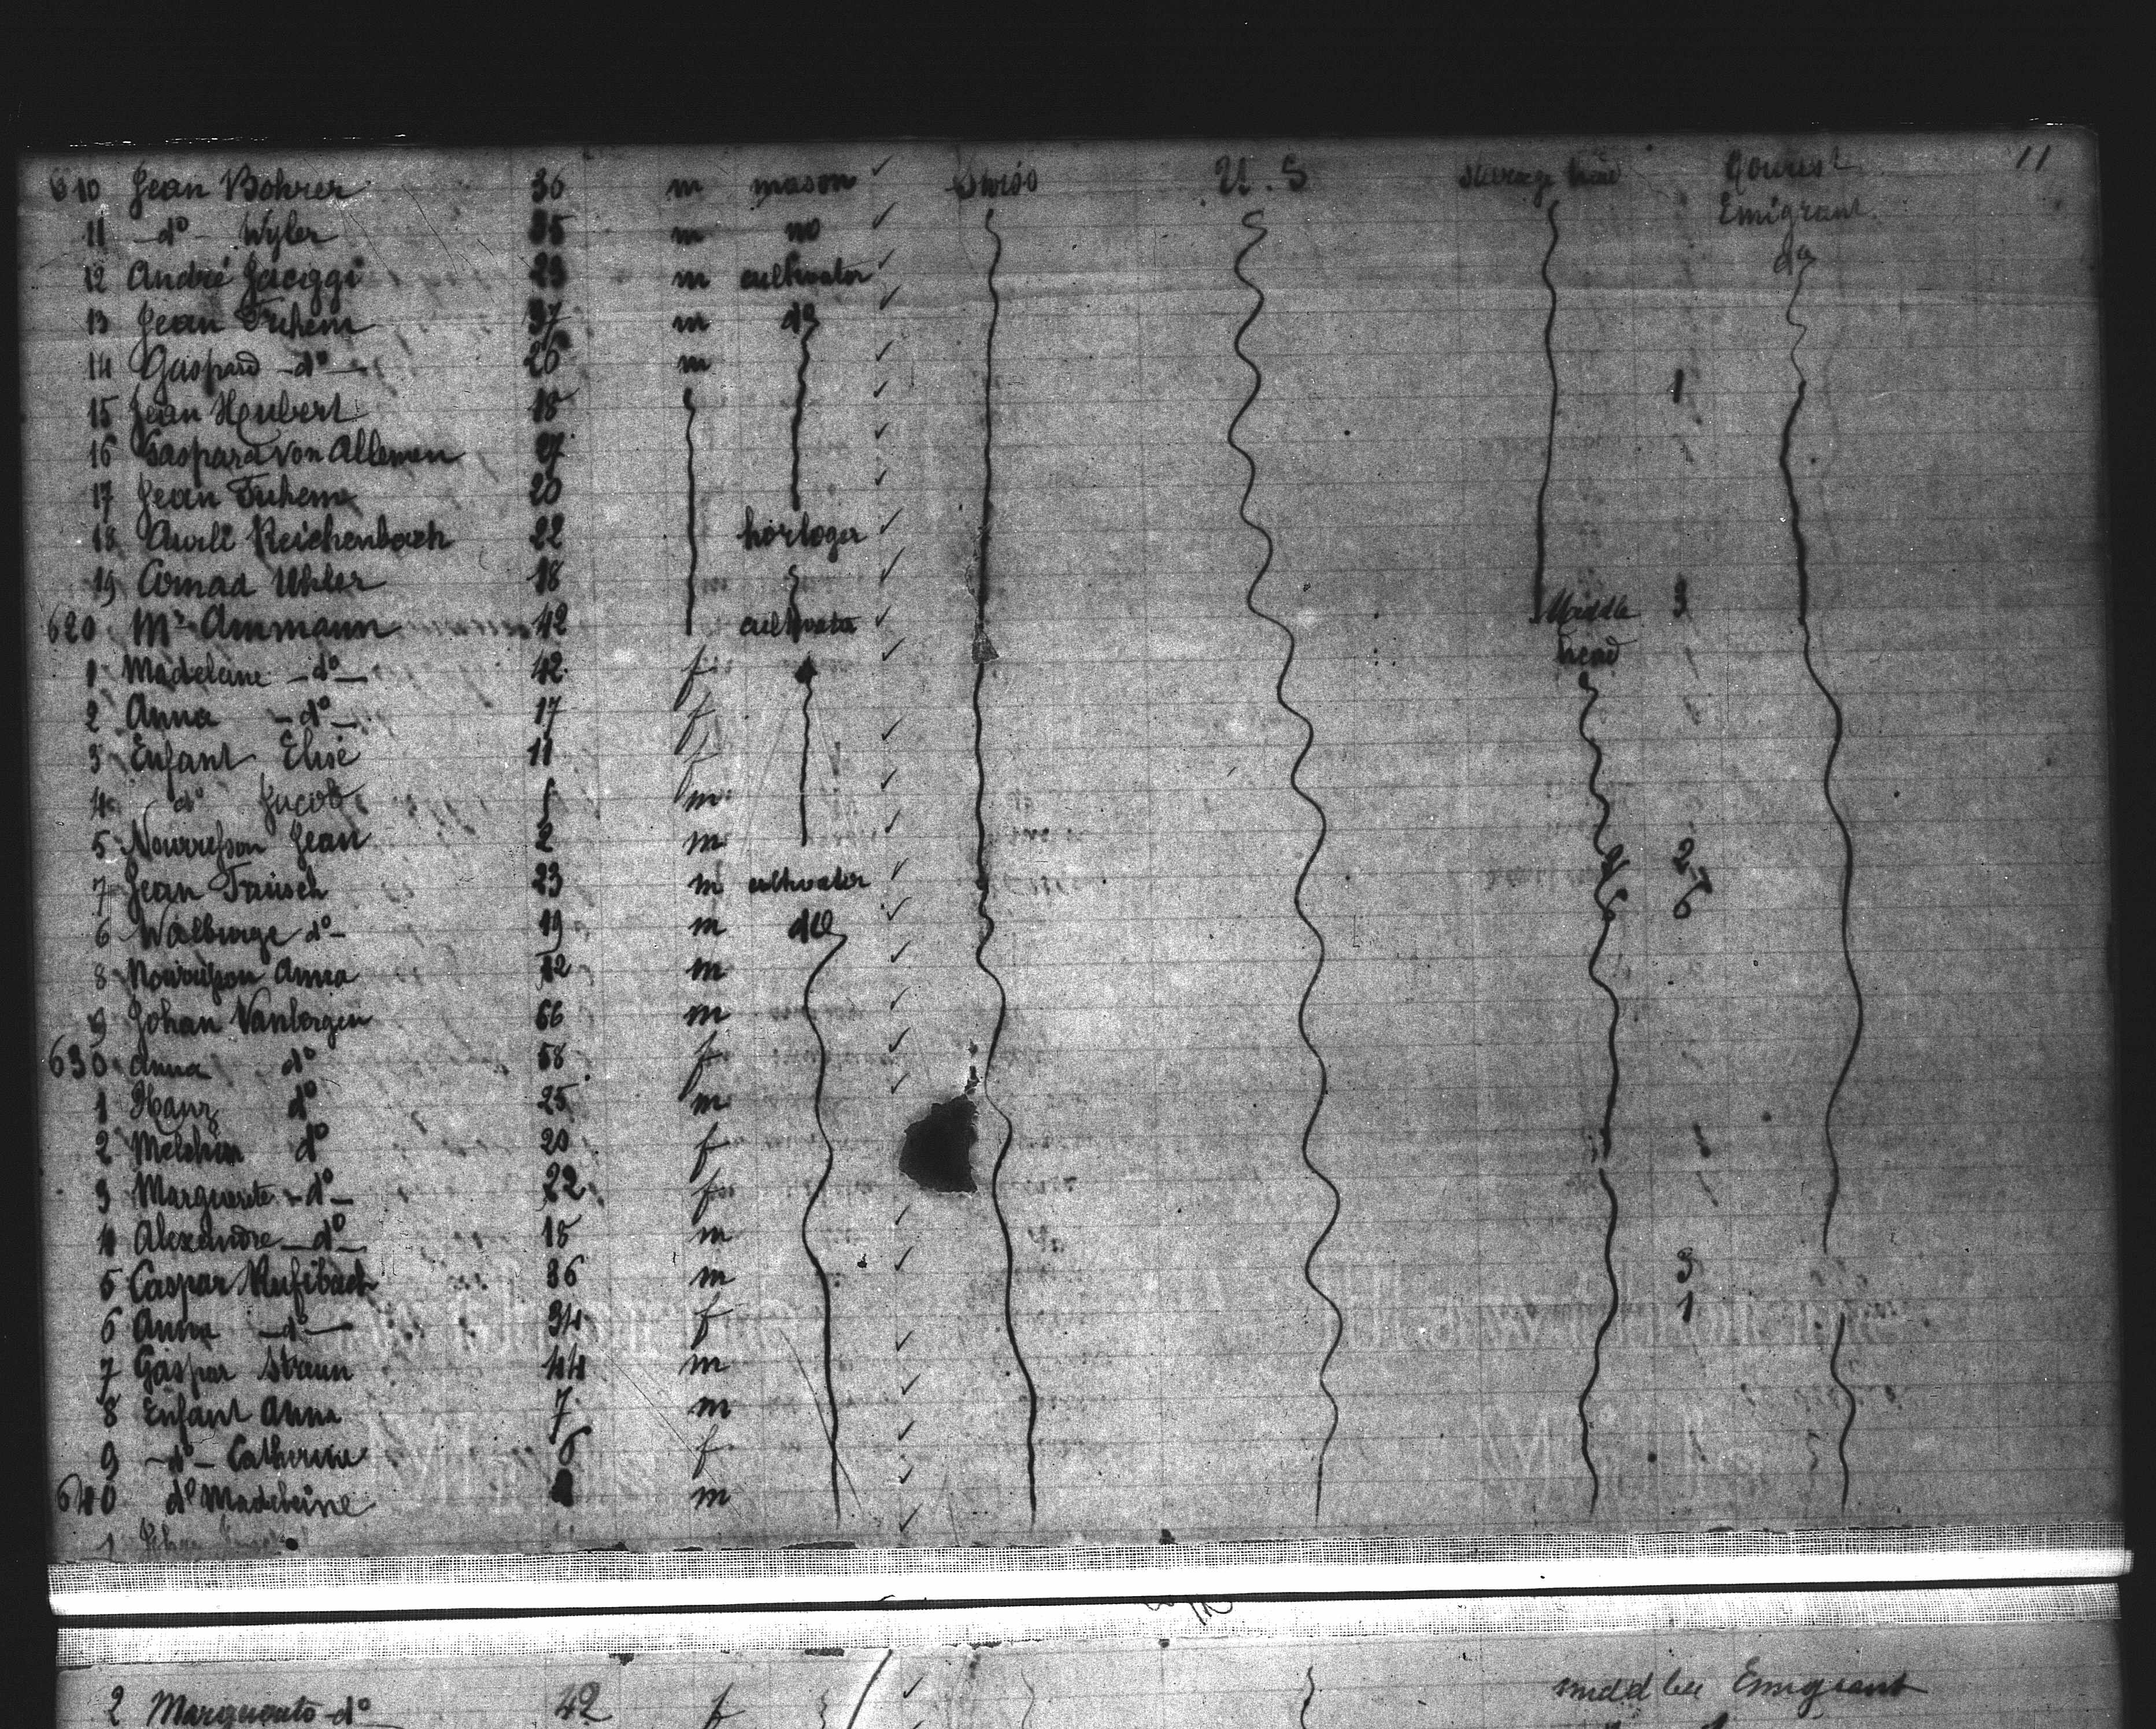 11
610 Jean Bohrer 36 m mason Swiss U.S Steerage head Tourist
11 -do- Wyler 35 m no Emigrant
12 André Jaeggi 29 m cultivator do
13 Jean Fuhem 37 m do
14 Gaspard -do- 26 m
15 Jean Heubert 18 1
16 Gaspard Von Allemen 27
17 Jean Fuhem 20
18 Reichenbach 22 horloger
19 Uhler 18
620 Mr Ammann 42 cultivator Middle 3
1 Madeleine -do- 42 f head
2 Anna -do- 17 f
3 Enfant Elise 11 f
4 do Jacob m
5 Nourrisson Jean 2 m
7 Jean Tausch 23 m cultivator 2
6 Walburge do 19 m do 6
8 Nourrisson Anna m
9 Johan Vanbergen 66 m
630 Anna do 58 f
1 Hanz do 25 m
2 Melchior do 20 f
3 Marguerite -do- 22 f
4 Alexandre -do- 18 m
5 Caspar Rufibach 36 m 3
6 Anna -do- 34 f 1
7 Gaspar Straun 44 m
8 Enfant Anna 7 m
9 -do- Catherine f
640 do Madeleine m
1
2 Marguerite do 42 f middle Emigrant